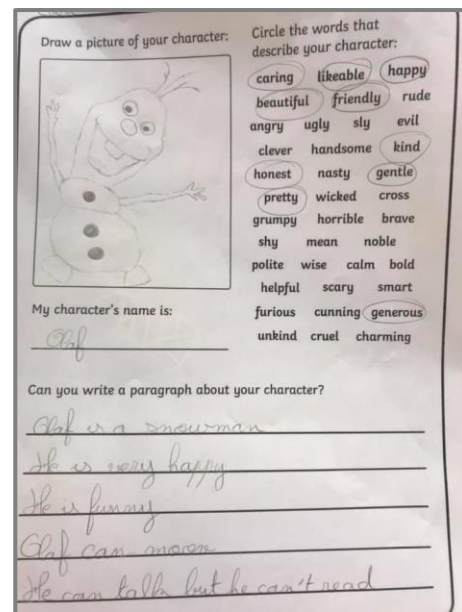 Draw a picture of your character:
Circle the words that
describe your character:
caring likeable happy
beautiful friendly rude
angry ugly sly evil
clever handsome kind
honest nasty gentle
pretty wicked cross
grumpy horrible brave
shy mean noble
polite wise calm bold
helpful scary smart
furious cunning generous
unkind cruel charming
My character's name is:
Olaf
Can you write a paragraph about your character?
Olaf is a snowman
He is very happy
He is funny
Olaf can moove
He can talk but he can't read